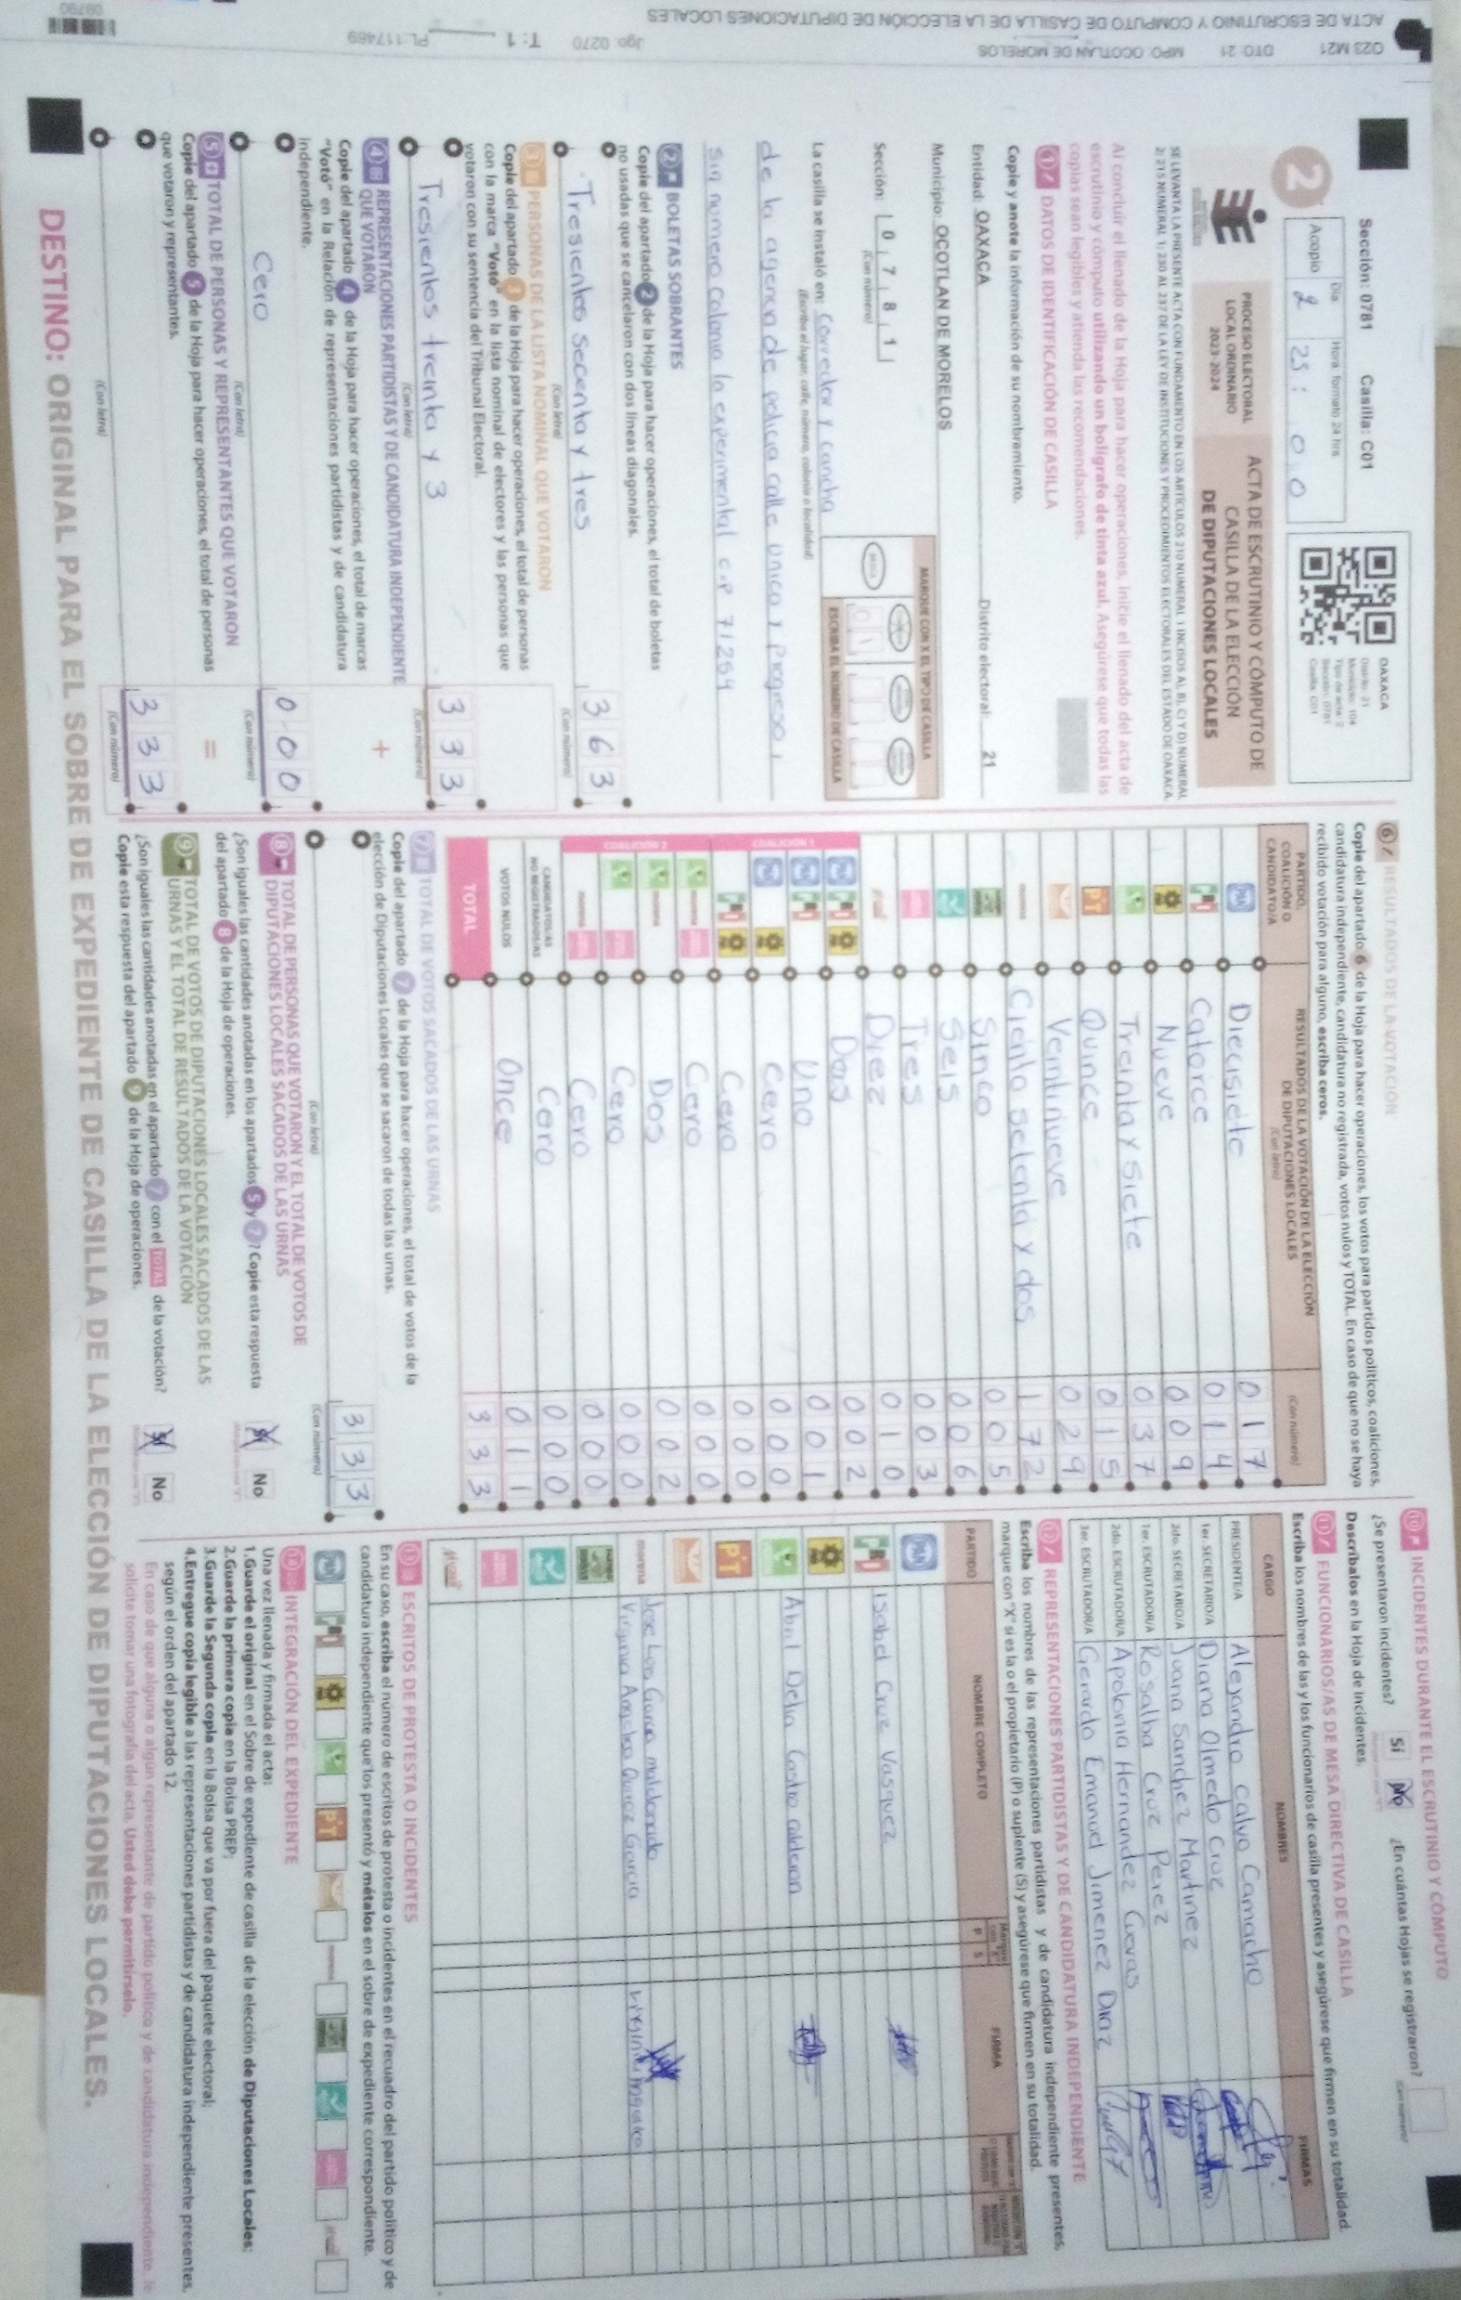 Sección: 0781 Casilla: C01
2
Acopio
Día
2
Hora formato 24 hrs
23:00
OAXACA
Distrito: 21
Municipio: 104
Tipo de acta: 2
Sección: 0781
Casilla: C01
PROCESO ELECTORAL
LOCAL ORDINARIO
2023-2024
ACTA DE ESCRUTINIO Y CÓMPUTO DE
CASILLA DE LA ELECCIÓN
DE DIPUTACIONES LOCALES
Al concluir el llenado de la Hoja para hacer operaciones, inicie el llenado del acta de
escrutinio y cómputo utilizando un bolígrafo de tinta azul. Asegúrese que todas las
copias sean legibles y atienda las recomendaciones.
1 DATOS DE IDENTIFICACIÓN DE CASILLA
Copie y anote la información de su nombramiento.
Entidad: OAXACA Distrito electoral: 21
Municipio: OCOTLAN DE MORELOS
Sección: 0 7 8 1
(Con número)
MARQUE CON X EL TIPO DE CASILLA
ESCRIBA EL NÚMERO DE CASILLA
La casilla se instaló en: Corredor y cancha
(Escriba el lugar, calle, número, colonia o localidad)
de la agencia de policia calle unica y progreso,
sin numero colonia la experimental c.p 71254
2 BOLETAS SOBRANTES
Copie del apartado 2 de la Hoja para hacer operaciones, el total de boletas
no usadas que se cancelaron con dos líneas diagonales.
Tresientos secenta y tres
363
(Con letra)
(Con número)
3 PERSONAS DE LA LISTA NOMINAL QUE VOTARON
Copie del apartado 3 de la Hoja para hacer operaciones, el total de personas
con la marca "Votó" en la lista nominal de electores y las personas que
votaron con su sentencia del Tribunal Electoral.
Tresientos treinta y 3
333
(Con letra)
(Con número)
4 REPRESENTACIONES PARTIDISTAS Y DE CANDIDATURA INDEPENDIENTE
QUE VOTARON
+
Copie del apartado 4 de la Hoja para hacer operaciones, el total de marcas
"Votó" en la Relación de representaciones partidistas y de candidatura
independiente.
Cero
000
(Con letra)
(Con número)
5 TOTAL DE PERSONAS Y REPRESENTANTES QUE VOTARON
=
Copie del apartado 5 de la Hoja para hacer operaciones, el total de personas
que votaron y representantes.
333
(Con letra)
(Con número)
6 RESULTADOS DE LA VOTACIÓN
Copie del apartado 6 de la Hoja para hacer operaciones, los votos para partidos políticos, coaliciones,
candidatura independiente, candidatura no registrada, votos nulos y TOTAL. En caso de que no se haya
recibido votación para alguno, escriba ceros.
PARTIDO, COALICIÓN O CANDIDATO/A
RESULTADOS DE LA VOTACIÓN DE LA ELECCIÓN
DE DIPUTACIONES LOCALES
(Con letra)
(Con número)
PAN Diecisiete 017
PRI Catorce 014
PRD Nueve 009
Treinta y siete 037
PT Quince 015
Veintinueve 029
morena Ciento setenta y dos 172
Sinco 005
Seis 006
Tres 003
Diez 010
COALICIÓN 1
Dos 002
Uno 001
Cero 000
Cero 000
COALICIÓN 2
Cero 000
Dos 002
Cero 000
Cero 000
CANDIDATOS/AS
NO REGISTRADOS/AS Cero 000
VOTOS NULOS Once 011
TOTAL 333
7 TOTAL DE VOTOS SACADOS DE LAS URNAS
Copie del apartado 7 de la Hoja para hacer operaciones, el total de votos de la
elección de Diputaciones Locales que se sacaron de todas las urnas.
333
(Con letra)
(Con número)
8 TOTAL DE PERSONAS QUE VOTARON Y EL TOTAL DE VOTOS DE
DIPUTACIONES LOCALES SACADOS DE LAS URNAS
¿Son iguales las cantidades anotadas en los apartados 5 y 7? Copie esta respuesta
del apartado 8 de la Hoja de operaciones.
Sí No
9 TOTAL DE VOTOS DE DIPUTACIONES LOCALES SACADOS DE LAS
URNAS Y EL TOTAL DE RESULTADOS DE LA VOTACIÓN
¿Son iguales las cantidades anotadas en el apartado 7 con el TOTAL de la votación?
Copie esta respuesta del apartado 9 de la Hoja de operaciones.
Sí No
10 INCIDENTES DURANTE EL ESCRUTINIO Y CÓMPUTO
¿Se presentaron incidentes? Sí No ¿En cuántas Hojas se registraron?
Descríbalos en la Hoja de incidentes.
11 FUNCIONARIOS/AS DE MESA DIRECTIVA DE CASILLA
Escriba los nombres de las y los funcionarios de casilla presentes y asegúrese que firmen en su totalidad.
CARGO NOMBRES FIRMAS
PRESIDENTE/A Alejandro Calvo Camacho
1er. SECRETARIO/A Diana Olmedo Cruz
2do. SECRETARIO/A Juana Sanchez Martinez
1er. ESCRUTADOR/A Rosalba Cruz Perez
2do. ESCRUTADOR/A Apolonia Hernandez Cuevas
3er. ESCRUTADOR/A Gerardo Emanuel Jimenez Diaz
12 REPRESENTACIONES PARTIDISTAS Y DE CANDIDATURA INDEPENDIENTE
Escriba los nombres de las representaciones partidistas y de candidatura independiente presentes,
marque con "X" si es la o el propietario (P) o suplente (S) y asegúrese que firmen en su totalidad.
PARTIDO NOMBRE COMPLETO P S FIRMA
PAN
PRI Isabel Cruz Vasquez
PRD
Abril Delia Castro Calderon
PT
morena Jose Leon Garcia maldonado
Virginia Angelica Quiroz Garcia
13 ESCRITOS DE PROTESTA O INCIDENTES
En su caso, escriba el número de escritos de protesta o incidentes en el recuadro del partido político y de
candidatura independiente que los presentó y métalos en el sobre de expediente correspondiente.
14 INTEGRACIÓN DEL EXPEDIENTE
Una vez llenada y firmada el acta:
1.Guarde el original en el Sobre de expediente de casilla de la elección de Diputaciones Locales;
2.Guarde la primara copia en la Bolsa PREP;
3.Guarde la Segunda copia en la Bolsa que va por fuera del paquete electoral;
4.Entregue copia legible a las representaciones partidistas y de candidatura independiente presentes,
según el orden del apartado 12.
En caso de que alguna o algún representante de partido político y de candidatura independiente, le
solicite tomar una fotografía del acta, Usted debe permitírselo.
DESTINO: ORIGINAL PARA EL SOBRE DE EXPEDIENTE DE CASILLA DE LA ELECCIÓN DE DIPUTACIONES LOCALES.
O23 M21 DTO: 21 MPO: OCOTLAN DE MORELOS Jgo: 0270 T: 1 PL: 117469
ACTA DE ESCRUTINIO Y COMPUTO DE CASILLA DE LA ELECCIÓN DE DIPUTACIONES LOCALES